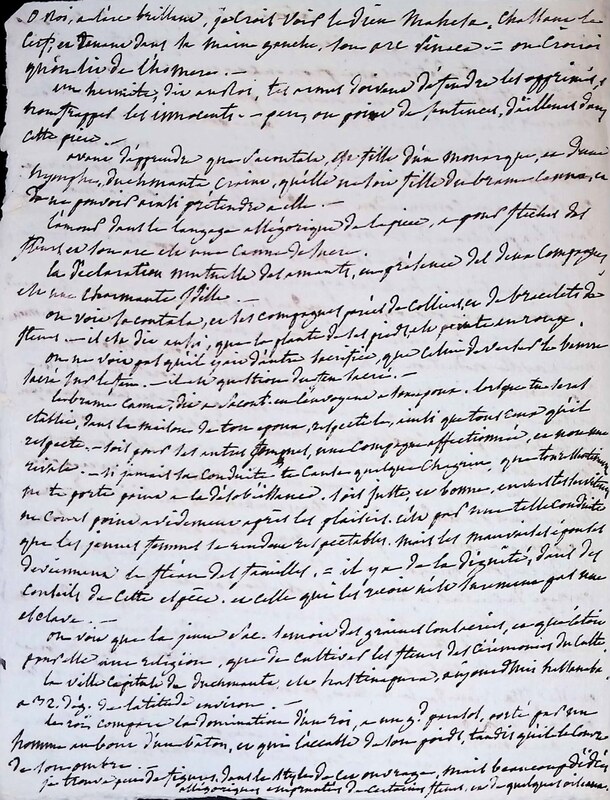 O Roi, a l'air brillant, je crois voir le dieu Mahesa, chassant le
cerf, et tenant dans sa main gauche, son arc Pinaca. — on croiroit
qu'on lit de l'homere. —
un hermite, dit au Roi, tes armes doivent défendre les opprimés,
non frapper les innocents. — peu, ou point de sentences, d'ailleurs dans
cette pièce. —
avant d'apprendre que Sacontale, est fille d'un monarque, et d'une
nymphe, Duchmante craint, qu'elle ne soit fille du brame Canna, et
de ne pouvoir ainsi pretendre a elle. —
l'amour dans le langage allégorique de la pièce, a pour fleches des
fleurs et son arc est une canne de sucre.
la déclaration mutuelle des amants, en présence des deux compagnes
est une charmante idille. —
on voit Sacontala, et ses compagnes parées de colliers et de bracelets de
fleurs. — il est dit aussi, que la plante de ses pieds, est peinte en rouge.
on ne voit pas qu'il y ait d'autre sacrifice, que celui de verser le beurre
sacré sur le feu. — il est question du feu sacré. —
le brame Canna, dit a Sacont. en l'envoyant a son epoux. lorsque tu seras
etablie, dans la maison de ton epoux, respecte le, ainsi que tous ceux qu'il
respecte. — sois pour les autres femmes, une compagne affectionnée, et non une
rivale. — si jamais sa conduite te cause quelque chagrin, que ton
ne te porte point a la désobéissance. sois juste et bonne, envers tes serviteurs
ne cours point avidement après les plaisirs. c'est par une telle conduite
que les jeunes femmes se rendent respectables. mais les mauvaises épouses
deviennent le fléau des familles. = il y a de la dignité, dans des
conseils de cette espèce. et celle qui les reçoit n'est surement pas une
esclave. —
on voit que la jeune Sac. semoit des graines consacrées, et que c'étoit
pour elle une religion, que de cultiver les fleurs des cérémonies du culte.
la ville capitale de Duchmante, est hastinapura, aujourdhui
a 32. dég. de latitude environ. —
le roi compare la domination d'un Roi, a un gd. parasol, porté par un
homme au bout d'un bâton, et qui l'accable de son poids, tandis qu'il le couvre
de son ombre. —
je trouve peu de figures, dans le style de cet ouvrage, mais beaucoup d'idées
allégoriques empruntées de certaines fleurs, et de quelques oiseaux.